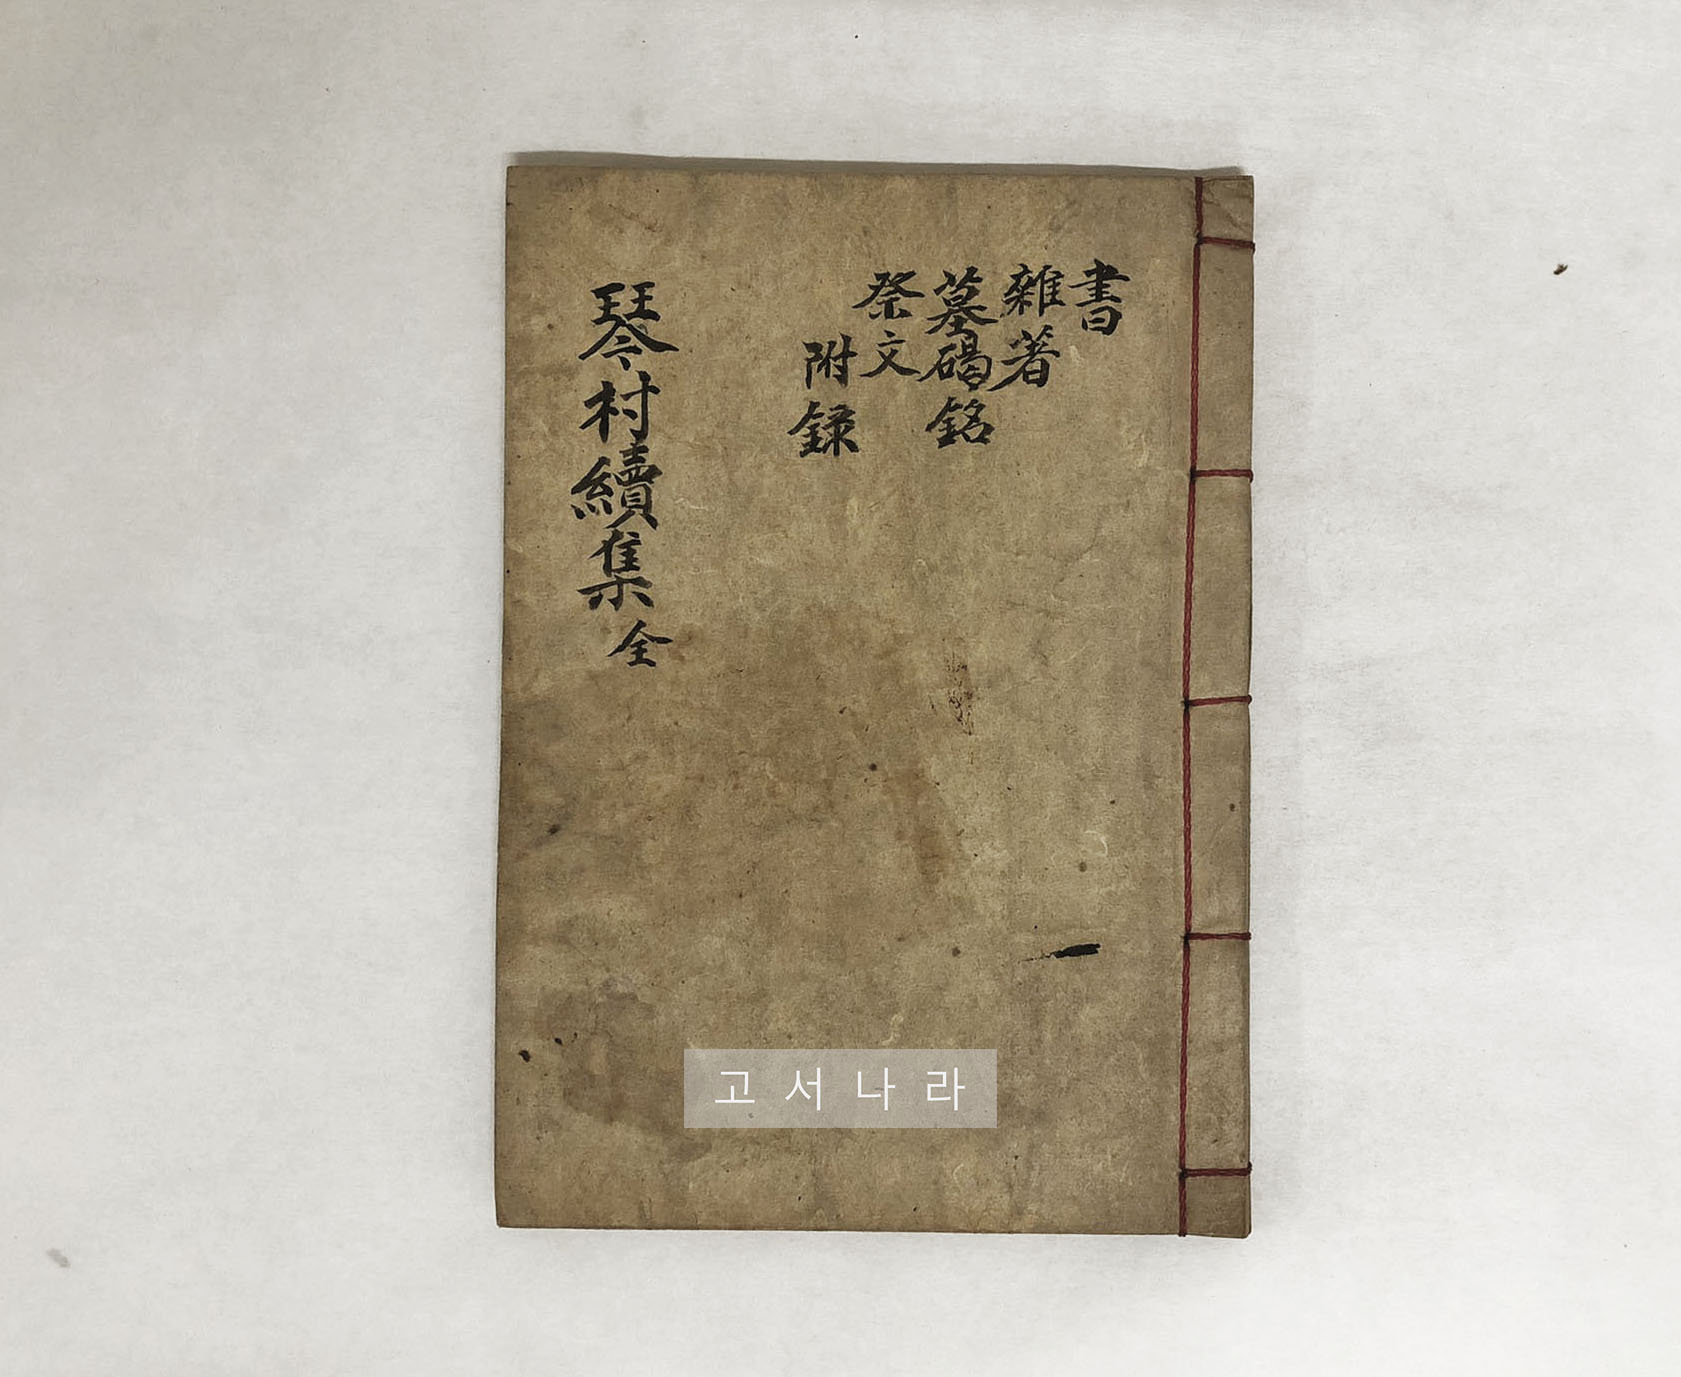 書
雜著
墓碣銘
祭文
附錄
琴村續集 全
고서나라